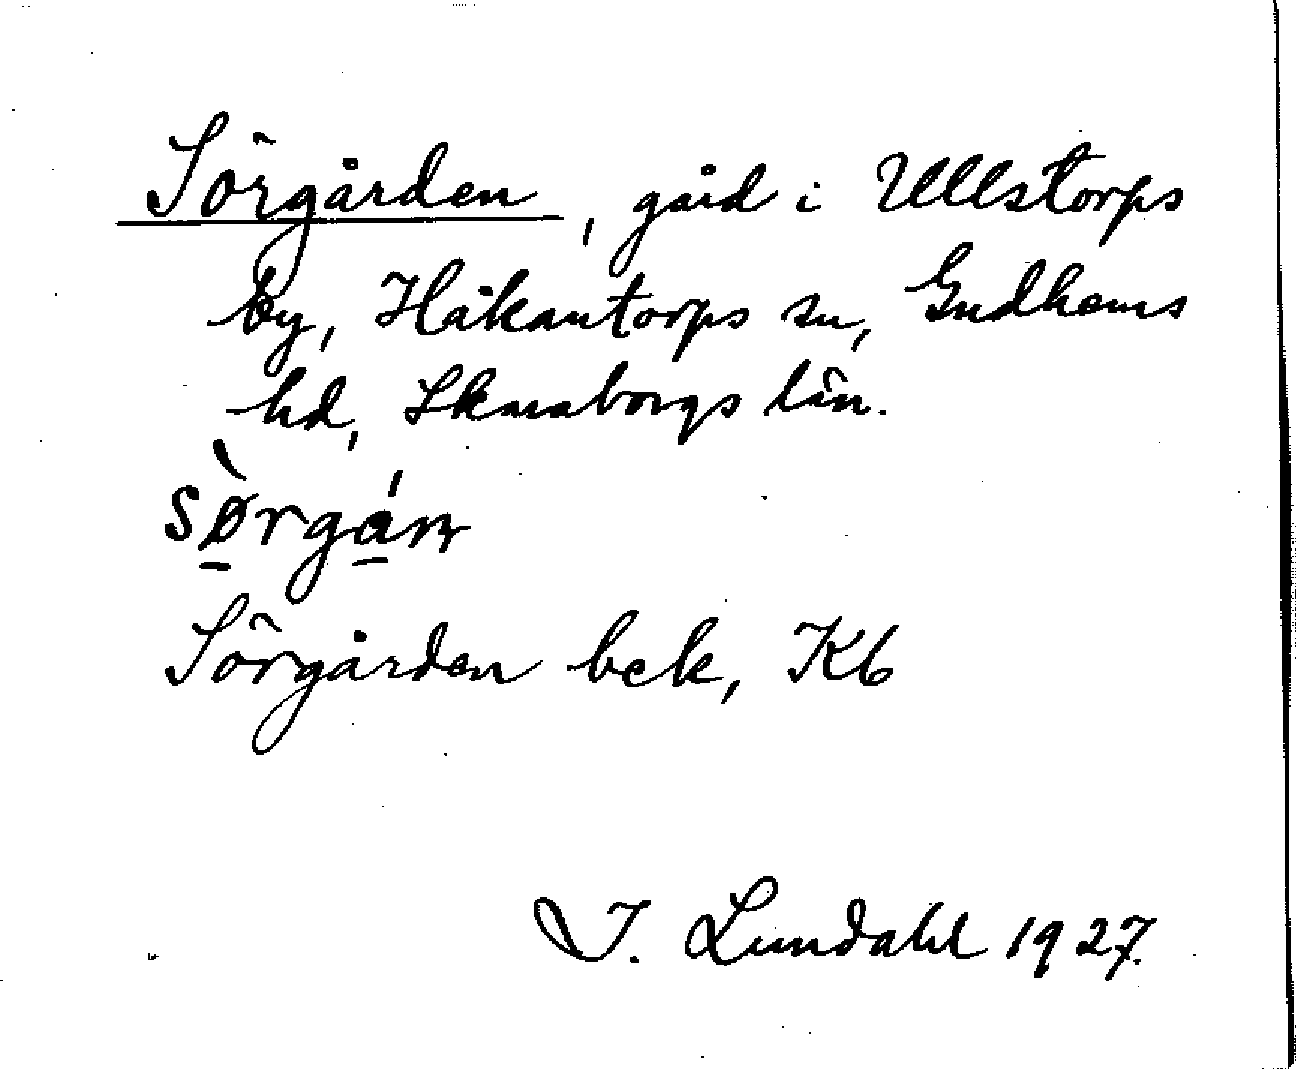 Sörgården, gård i Ullstorps
by, Håkantorps sn, Gudhems
hd, Skaraborgs län.
sø̀rgán
Sörgården bek, Kb
I. Lundahl 1927.